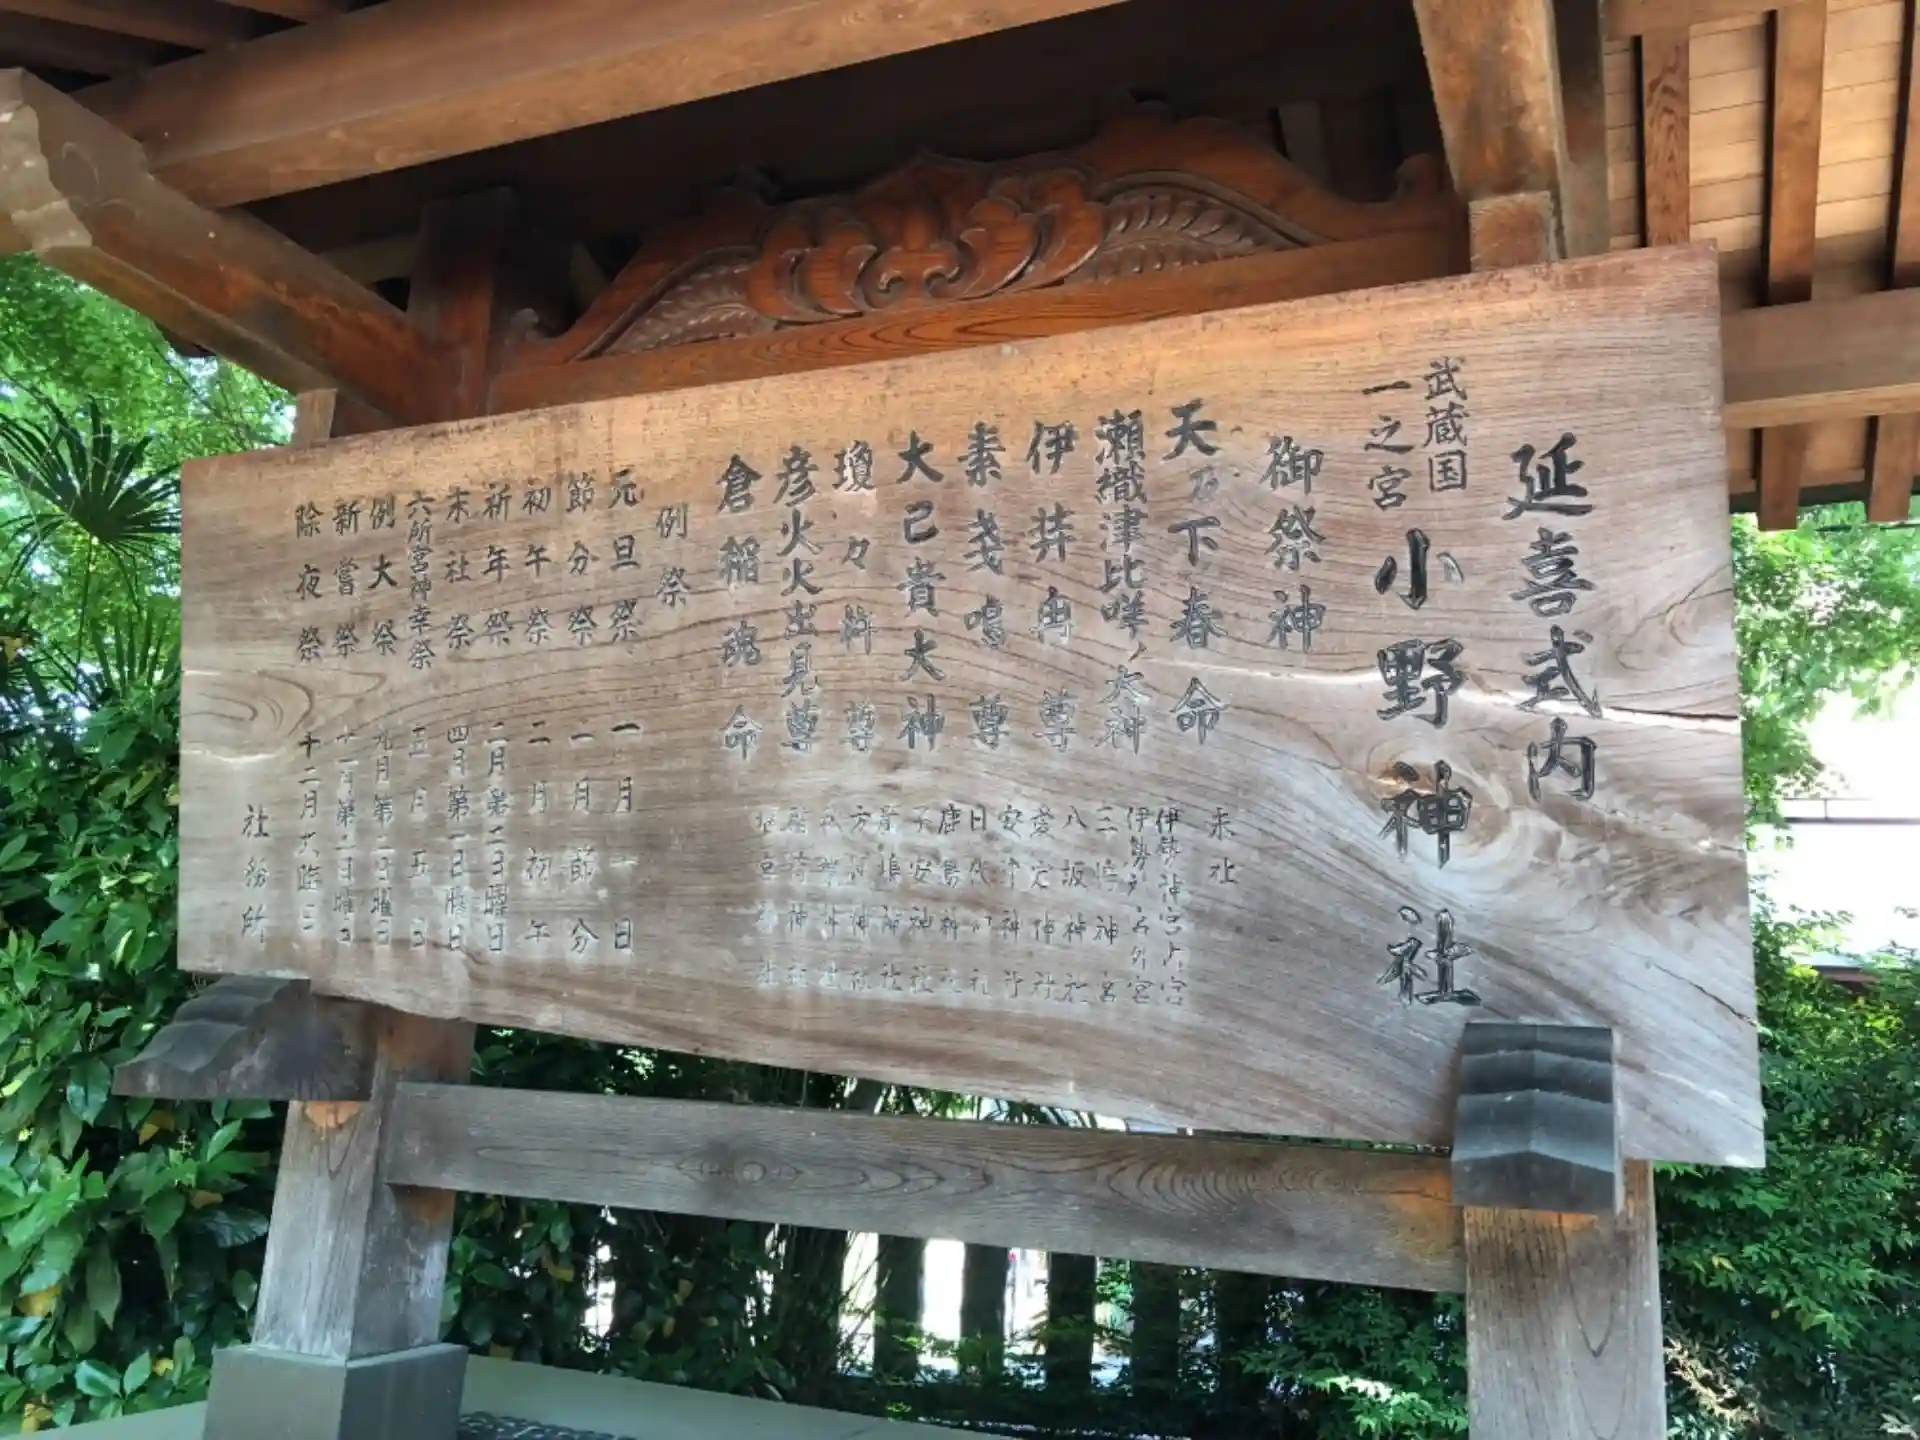 延喜式内
武蔵国
一之宮
小野神社
御祭神
天乃下春命
瀬織津比咩ノ大神
伊弉冉尊
素戔嗚尊
大己貴大神
瓊々杵尊
彦火火出見尊
倉稲魂命
末社
伊勢神宮内宮
伊勢神宮外宮
三嶋神宮
八坂神社
愛宕神社
安津神社
日代神社
鹿島神社
子安神社
神社
神社
神社
神社
例祭
元旦祭 一月一日
節分祭 二月節分
初午祭 二月初午
祈年祭 二月第二日曜日
末社祭 四月第一日曜日
六所宮神幸祭 五月五日
例大祭 九月第二日曜日
新嘗祭 十一月第二日曜日
除夜祭 十二月大晦日
社務所